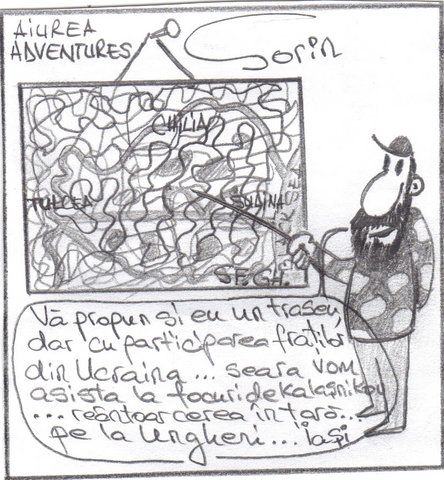 AIUREA
ADVENTURES
Sorin
CHILIA
TULCEA
SULINA
SF.GH.
Vă propun și eu un traseu,
dar cu participarea fraților
din Ucraina... seara vom
asista la focuri de kalașnikov
...reăntoarcerea în țară...
pe la Ungheni... iași